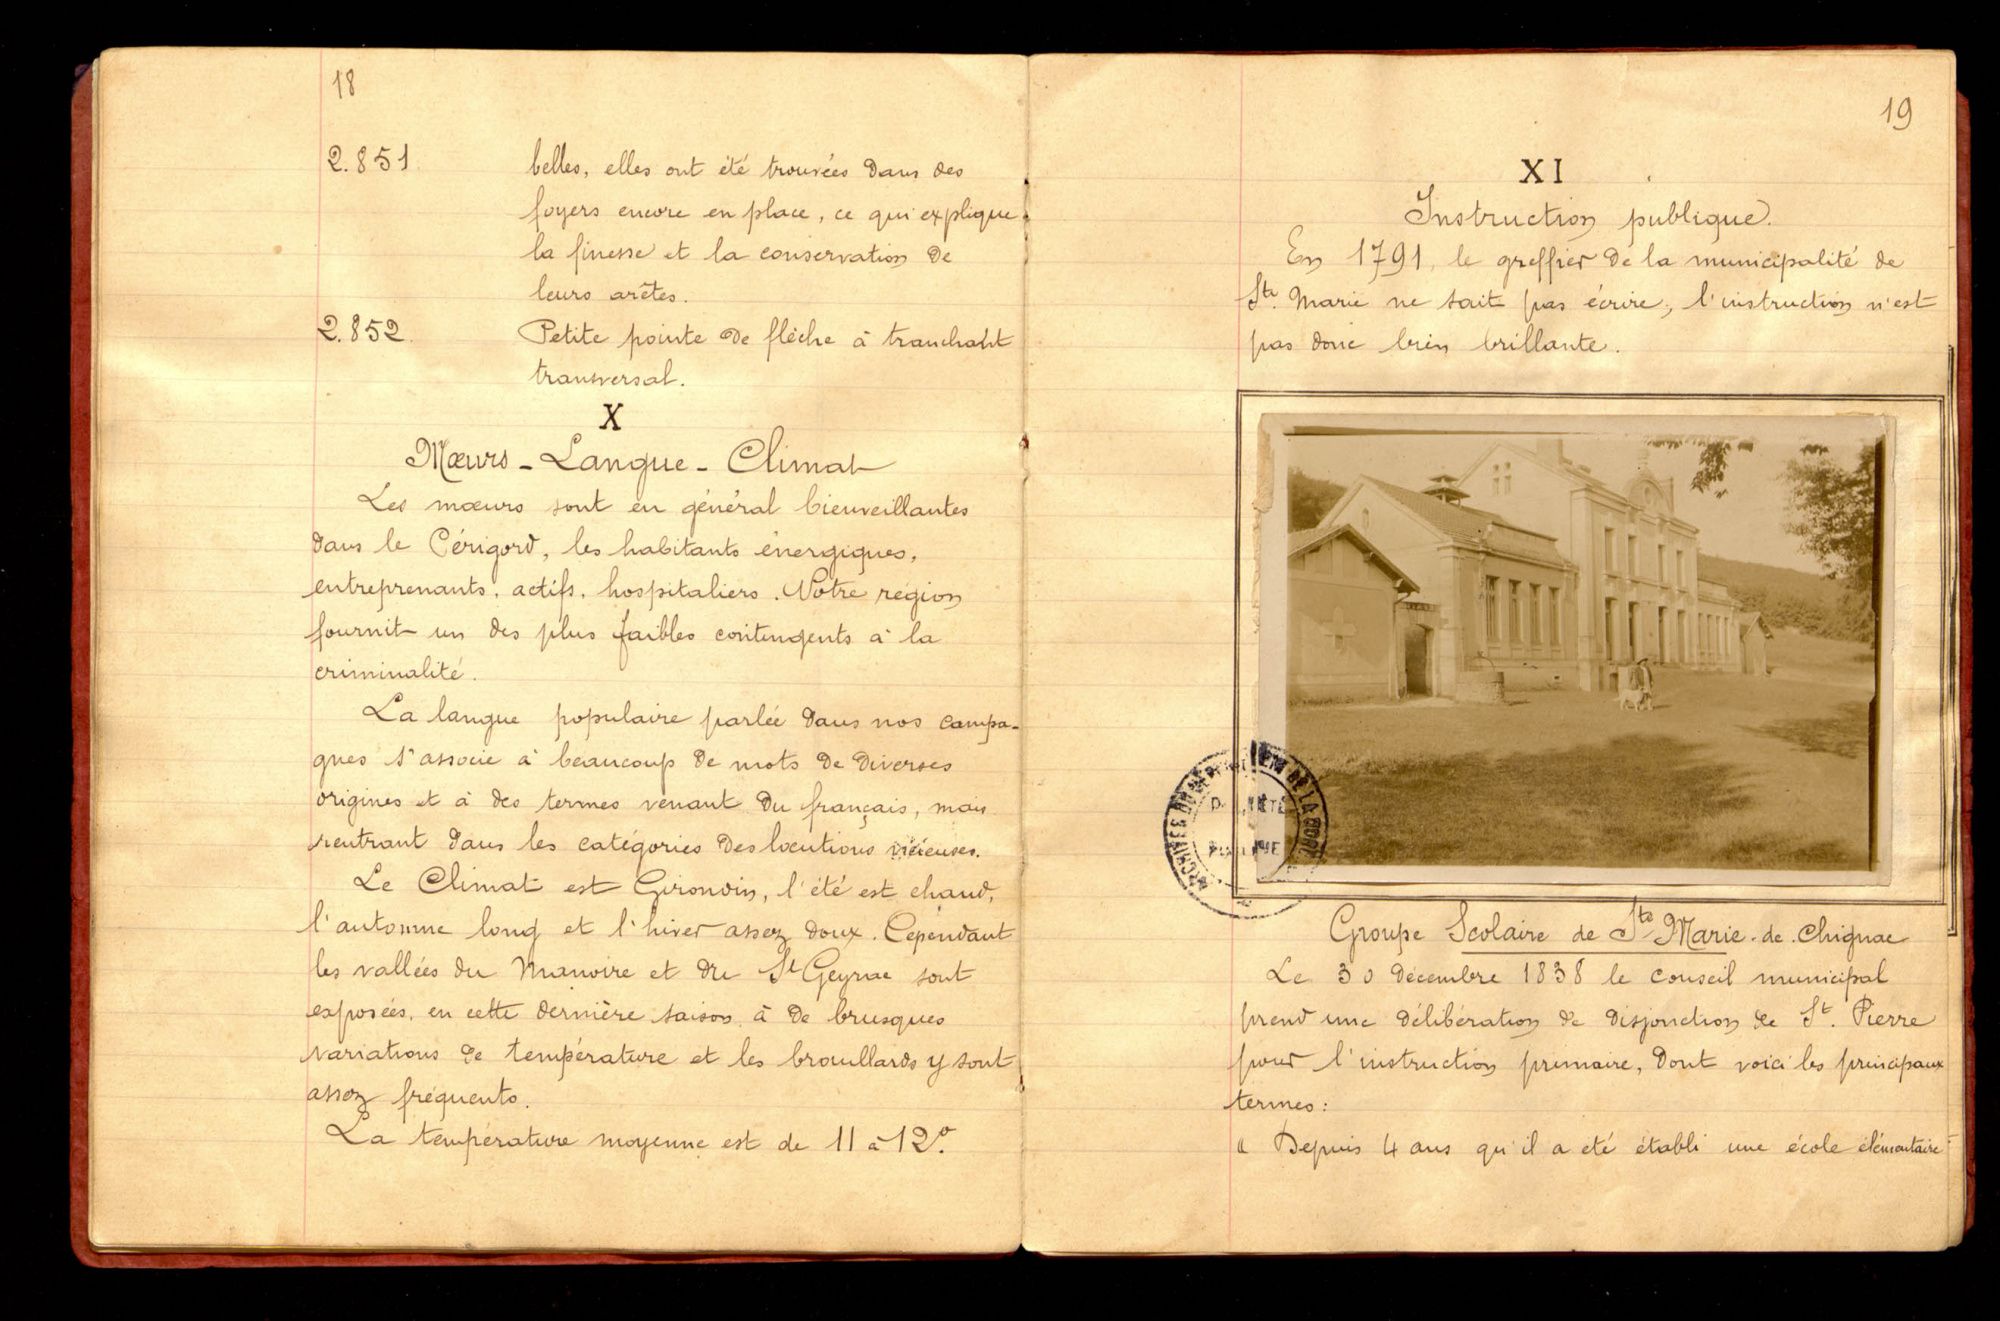 18
2.851 belles, elles ont été trouvées dans des
foyers encore en place, ce qui explique
la finesse et la conservation de
leurs arêtes.
2.852 Petite pointe de flèche à tranchant
transversal.
X
Mœurs - Langue - Climat
Les mœurs sont en général bienveillantes
dans le Périgord, les habitants énergiques,
entreprenants, actifs, hospitaliers. Notre région
fournit un des plus faibles contingents à la
criminalité.
La langue populaire parlée dans nos campa-
gnes s'associe à beaucoup de mots de diverses
origines et à des termes venant du français, mais
rentrant dans les catégories des locutions vicieuses.
Le Climat est Girondin, l'été est chaud,
l'automne long et l'hiver assez doux. Cependant
les vallées du Manoire et du St Geyrac sont
exposées, en cette dernière saison à de brusques
variations de température et les brouillards y sont
assez fréquents.
La température moyenne est de 11 à 12°.
19
XI
Instruction publique.
En 1791, le greffier de la municipalité de
Ste Marie ne sait pas écrire, l'instruction n'est
pas donc bien brillante.
ARCHIVES DE LA DOR
Groupe Scolaire de Ste Marie-de-Chignac
Le 30 décembre 1838 le conseil municipal
prend une délibération de disjonction de St. Pierre
pour l'instruction primaire, dont voici les principaux
termes:
« Depuis 4 ans qu'il a été établi une école élémentaire